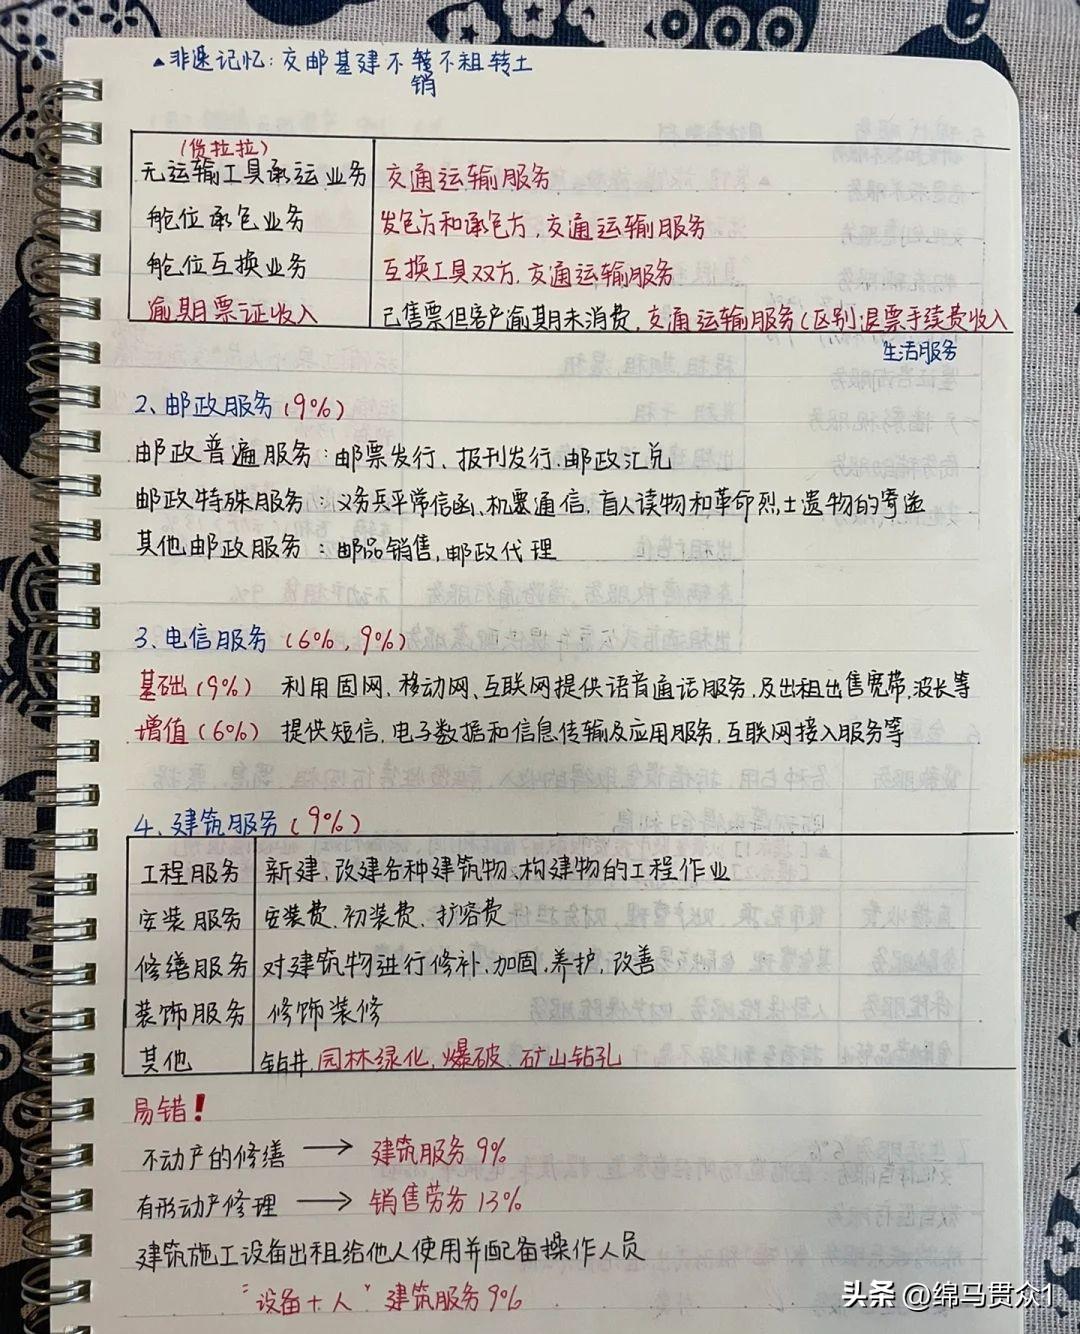 ▲非速记忆:交邮基建不转不租转土
销
(货拉拉)
无运输工具承运业务 交通运输服务
舱位承包业务 发包方和承包方,交通运输服务
舱位互换业务 互换工具双方,交通运输服务
逾期票证收入 已售票但客户逾期未消费,交通运输服务(区别退票手续费收入
生活服务
2、邮政服务(9%)
邮政普遍服务:邮票发行、报刊发行、邮政汇兑
邮政特殊服务:义务兵平常信函、机要通信,盲人读物和革命烈士遗物的寄递
其他邮政服务:邮品销售,邮政代理
3、电信服务(6%,9%)
基础(9%) 利用固网,移动网、互联网提供语音通话服务,及出租出售宽带,波长等
增值(6%) 提供短信,电子数据和信息传输及应用服务,互联网接入服务等
4、建筑服务(9%)
工程服务 新建,改建各种建筑物、构建物的工程作业
安装服务 安装费、初装费、扩容费
修缮服务 对建筑物进行修补,加固,养护,改善
装饰服务 修饰装修
其他 钻井,园林绿化,爆破,矿山钻孔
易错!
不动产的修缮 → 建筑服务9%
有形动产修理 → 销售劳务13%
建筑施工设备出租给他人使用并配备操作人员
"设备+人" 建筑服务9%
头条 @绵马贯众1